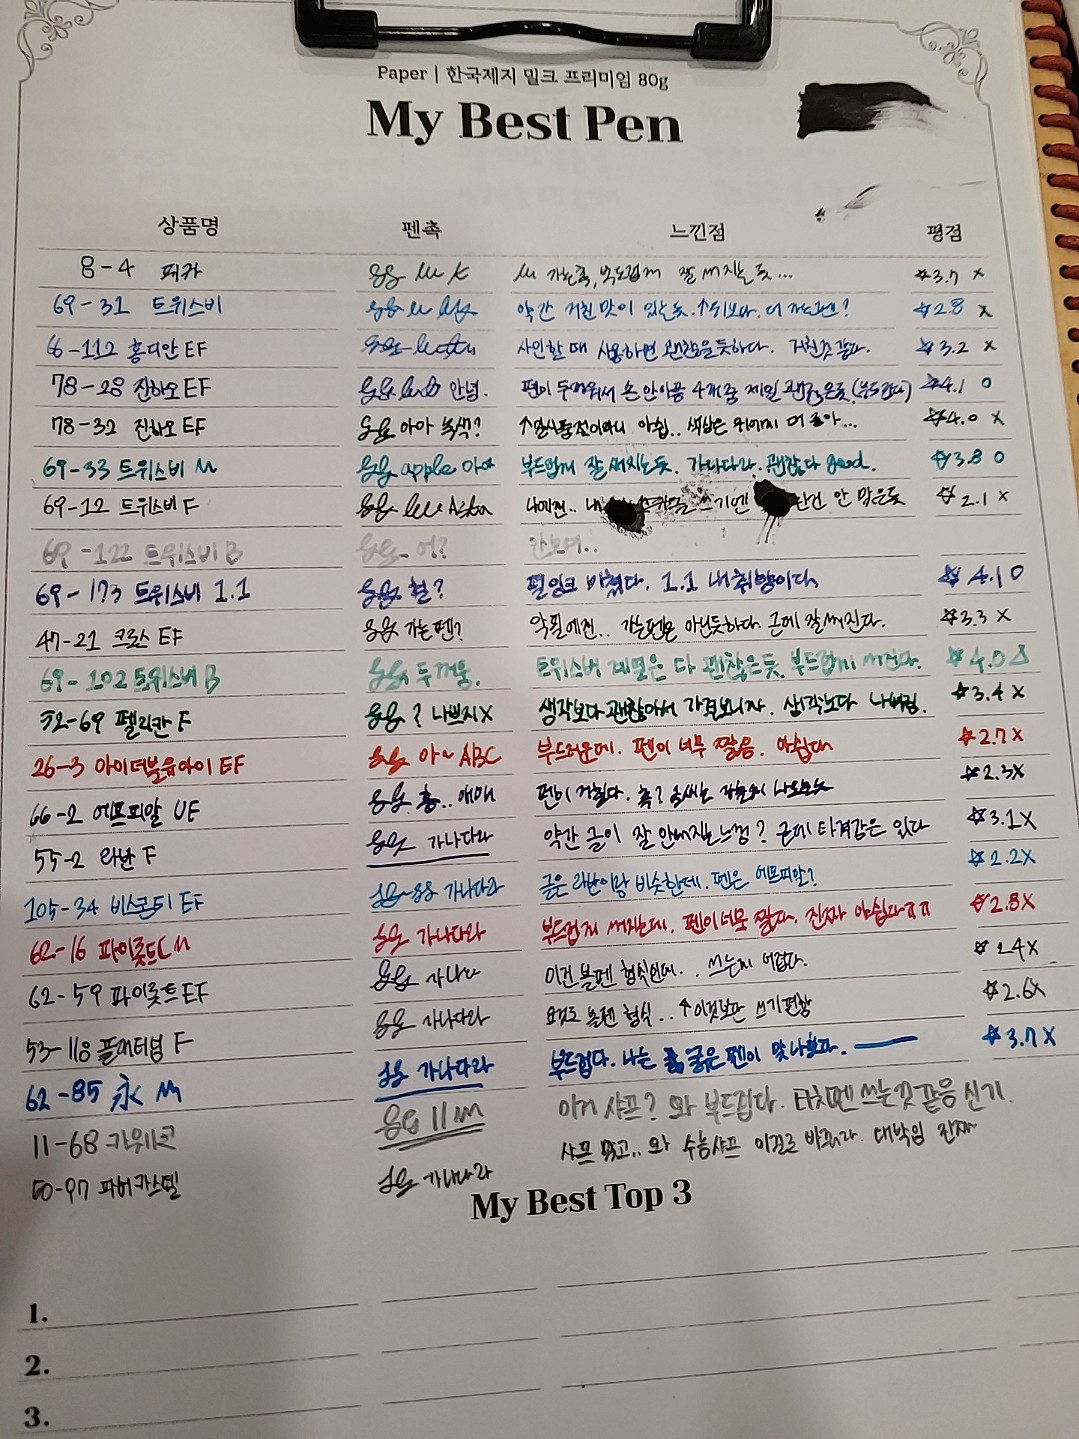 Paper | 한국제지 밀크 프리미엄 80g
My Best Pen
상품명 펜촉 느낀점 평점
8-4 피카 M 가는촉, 부드럽게 잘 써지는 듯... ☆3.7 X
69-31 트위스비 약간 거친 맛이 있는 듯. ↑위보다. 더 ☆2.8 X
6-112 홍디안 EF 사인할 때 사용하면 괜찮을듯하다. 거친것 같다. ☆3.2 X
78-28 진하오 EF 안녕. 펜이 두꺼워서 손 안아픔 4개중 제일 괜찮은듯 (부드럽다) ☆4.1 O
78-32 진하오 EF 아아 녹색? 아쉽.. 색상은 위에께 더 좋아... ☆4.0 X
69-33 트위스비 M apple 아아 부드럽게 잘 써지는듯. 가나다라. 괜찮다 good. ☆3.8 O
69-12 트위스비 F 나에겐.. 쓰기엔 안 맞은듯 ☆2.1 X
69-122 트위스비 B 어? 안보여..
69-173 트위스비 1.1 헐? 필잉크 미쳤다. 1.1 내취향이다 ☆4.1 O
47-21 크로스 EF 가는펜? 악필에겐.. 가는펜은 아닌듯하다 근데 잘써진다. ☆3.3 X
69-102 트위스비 B 두꺼움. 트위스비 계열은 다 괜찮은듯. 부드럽게 써진다. ☆4.0 △
52-69 펠리칸 F ? 나쁘지X 생각보다 괜찮아서 가격보니까. 생각보다 나쁘짐. ☆3.4 X
26-3 아이더블유아이 EF 아~ ABC 부드러운데. 펜이 너무 짧음. 아쉽다 ☆2.7 X
66-2 에프피알 UF 흠.. 애매 펜이 거칠다. ☆2.3X
55-2 라반 F 가나다라 약간 글이 잘 안써지는느낌? 근데 타격감은 있다 ☆3.1X
105-34 비스콘티 EF 가나다라 글은 라반이랑 비슷한데. 펜은 에프피알? ☆2.2X
62-16 파이롯트 M 가나다라 부드럽게 써지는데, 펜이너무 짧다. 진짜 아쉽다ㅠㅠ ☆2.8X
62-59 파이롯트 EF 가나다 이건 볼펜 형식인데.. 쓰는게 어렵다. ☆2.4X
53-118 플래티넘 F 가나다라 요것도 볼펜 형식.. ↑이것보단 쓰기편함 ☆2.6X
62-85 永 M 가나다라 부드럽다. 나는 굵은펜이 맞나보다. ☆3.7 X
11-68 카위코 이거 샤프? 와 부드럽다. 터치펜 쓰는것 같음 신기.
50-97 파버카스텔 가나다라 샤프 맞고.. 와 수능샤프 이걸로 바꿔라. 대박임 진짜
My Best Top 3
1.
2.
3.